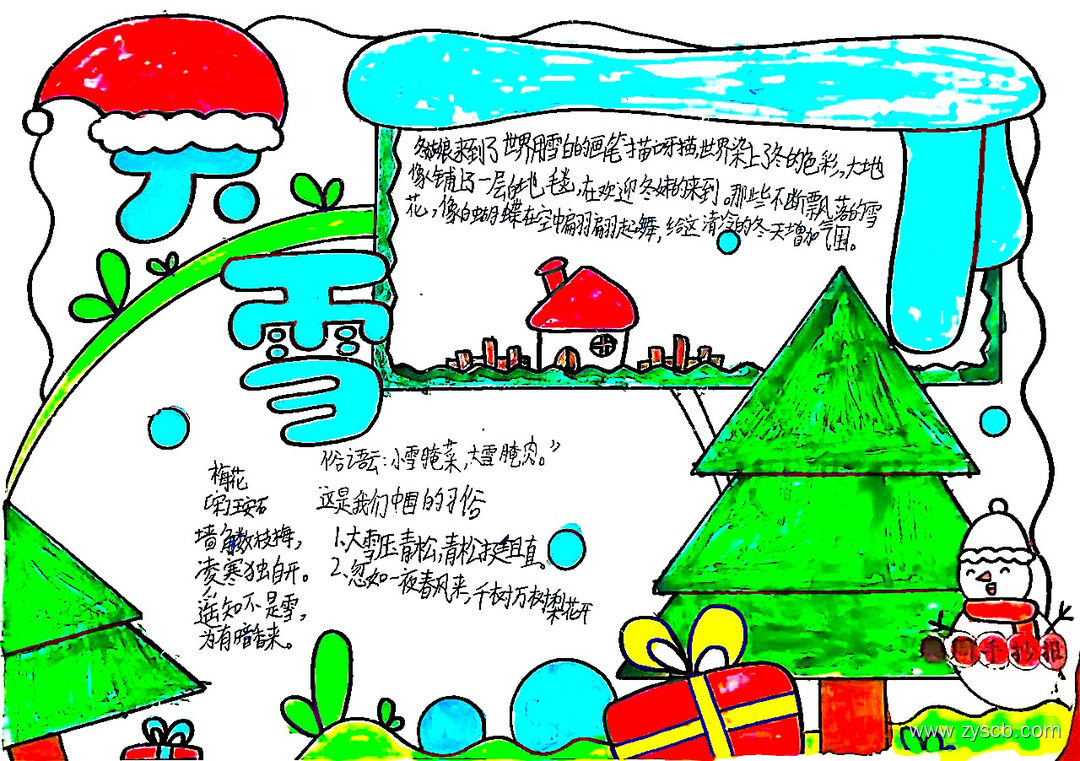 下雪
冬姑娘来到了世界用雪白的画笔描呀描,世界染上了冬的色彩,大地
像铺了一层白地毛毯,在欢迎冬的来到。那些不断飘落的雪
花,像白蝴蝶在空中翩翩起舞,给这清冷的冬天增加气围。
俗语云:小雪腌菜,大雪腌肉。”
这是我们中国的习俗
1.大雪压青松,青松挺且直。
2.忽如一夜春风来,千树万树梨花开
梅花
(宋)王安石
墙角数枝梅,
凌寒独自开。
遥知不是雪,
为有暗香来。
手抄报
www.zyscb.com